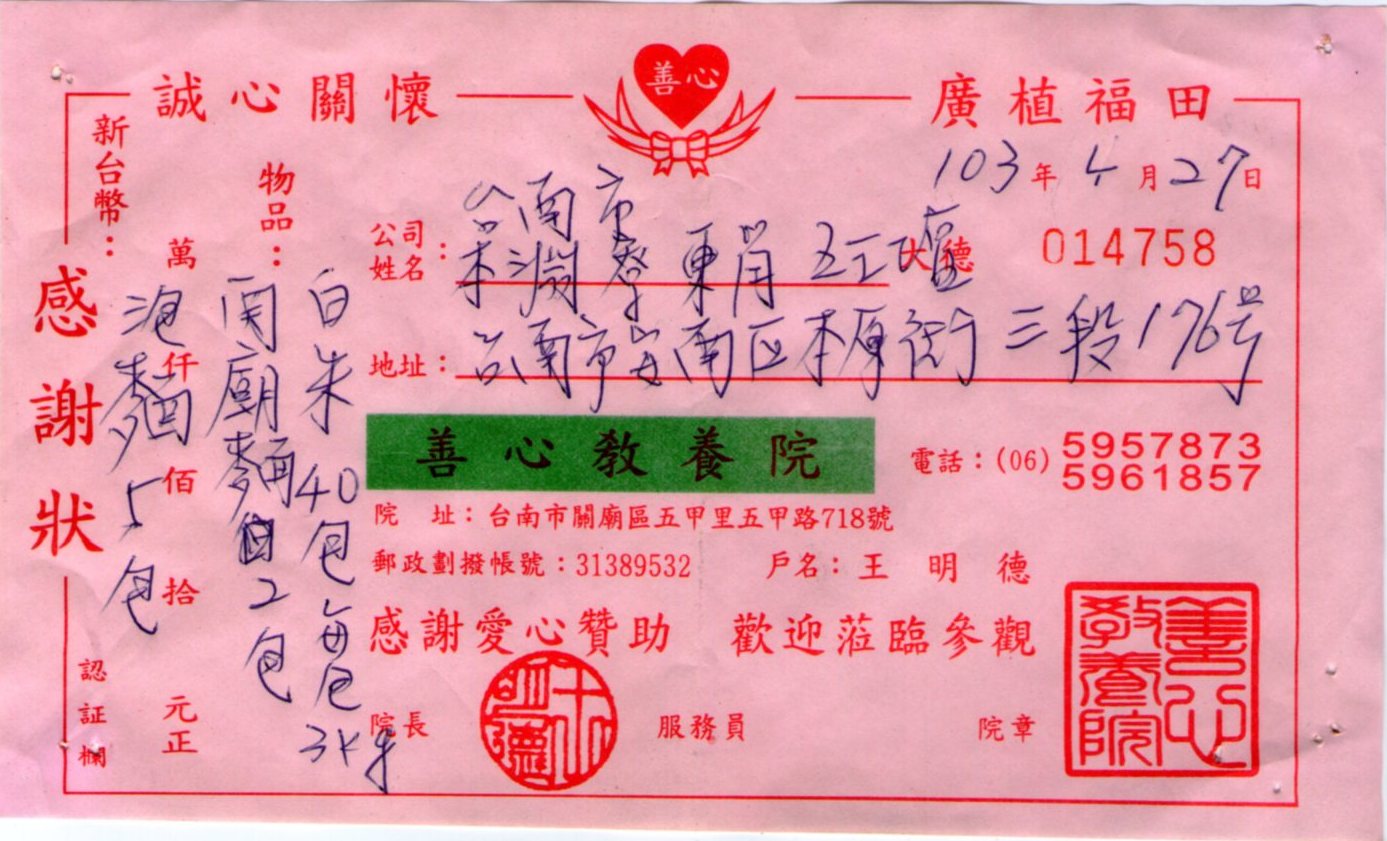 善心
誠心關懷
廣植福田
103年4月27日
新台幣：
物品：
公司
姓名：
台南市
本淵寮東肖五工
大德
014758
地址：
台南市安南区本原街三段176号
感謝狀
萬仟佰拾元正
白米40包每包3kg
関廟麵2包
泡麵5包
善心教養院
電話：(06) 5957873
5961857
院 址：台南市關廟區五甲里五甲路718號
郵政劃撥帳號：31389532 戶名：王 明 德
感謝愛心贊助 歡迎蒞臨參觀
認証欄
院長
王明德
服務員
院章
善心教養院